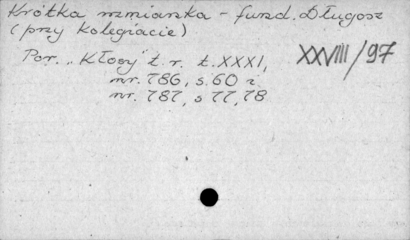 Krótka wzmianka – fund. Długosz
(przy kolegiacie)
Por. „Kłosy” t. r. t. XXXI,
nr. 786, s. 60 i
nr. 787, s 77, 78
XXVIII/97